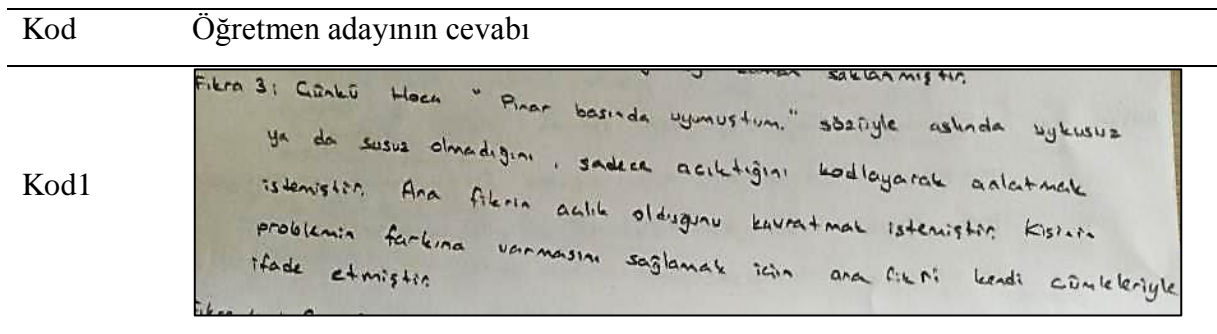 Kod Öğretmen adayının cevabı
saklanmıştır.
Kod1
Fıkra 3: Çünkü Hoca "Pınar başında uyumuştum." sözüyle aslında uykusuz
ya da susuz olmadığını, sadece acıktığını kodlayarak anlatmak
istemiştir. Ana fikrin açlık olduğunu kavratmak istemiştir. Kişinin
problemin farkına varmasını sağlamak için ana fikri kendi cümleleriyle
ifade etmiştir.